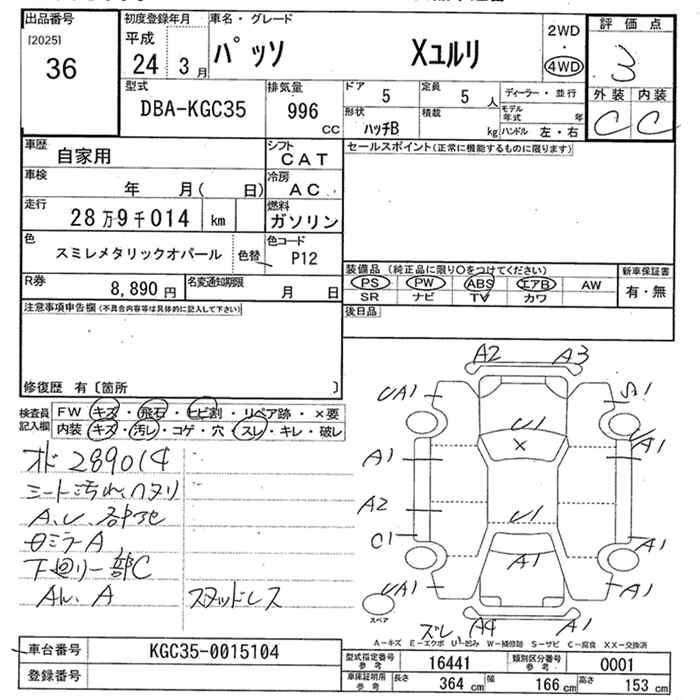 出品番号 初度登録年月 車名・グレード 2WD 評価点
[2025] 平成 ・
36 24 3月 パッソ Xユルリ 4WD 3
型式 排気量 ドア 定員 ディーラー・並行 外装 内装
DBA-KGC35 996 CC 5 5人 モデル年式 年 C C
形状 積載
ハッチB kg ハンドル 左・右
車歴 自家用 シフト CAT セールスポイント(正常に機能するものに限ります)
車検 年 月( 日) 冷房 AC
走行 28万9千014 km 燃料 ガソリン
色 スミレメタリックオパール 色替 色コード P12
R券 8,890円 名変通知期限 月 日
装備品 (純正品に限り○をつけてください) 新車保証書
PS PW ABS エアB AW 有・無
SR ナビ TV カワ
注意事項申告欄(不具合内容等は具体的に記入して下さい) 後日品
修復歴 有〔箇所 〕
検査員記入欄 FW キズ・飛石・ヒビ割・リペア跡・×要
内装 キズ・汚レ・コゲ・穴・スレ・キレ・破レ
オド 289014
シート汚れ、ヘタリ
A、U、各部
ロミラーA、
下廻り一部C
A、
スタッドレス
A2 A3
UA1 S1
U1 U
× A1
A1
A2 U1
C1 A1
A1
UA1 A1
スペア
ズレ、A4 A1
A-キズ E-エクボ U-凹み W-補修跡 S-サビ C-腐食 XX-交換済
車台番号 KGC35-0015104
型式指定番号 参考 16441 類別区分番号 参考 0001
登録番号
車庫証明用 参考 長さ 364 cm 幅 166 cm 高さ 153 cm